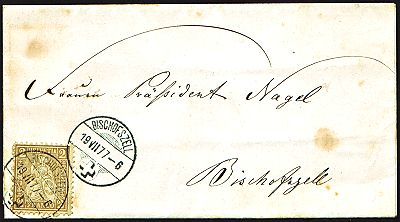 Frauen Präsident Nagel
BISCHOFSZELL
19 VII 77-6
Bischofszell